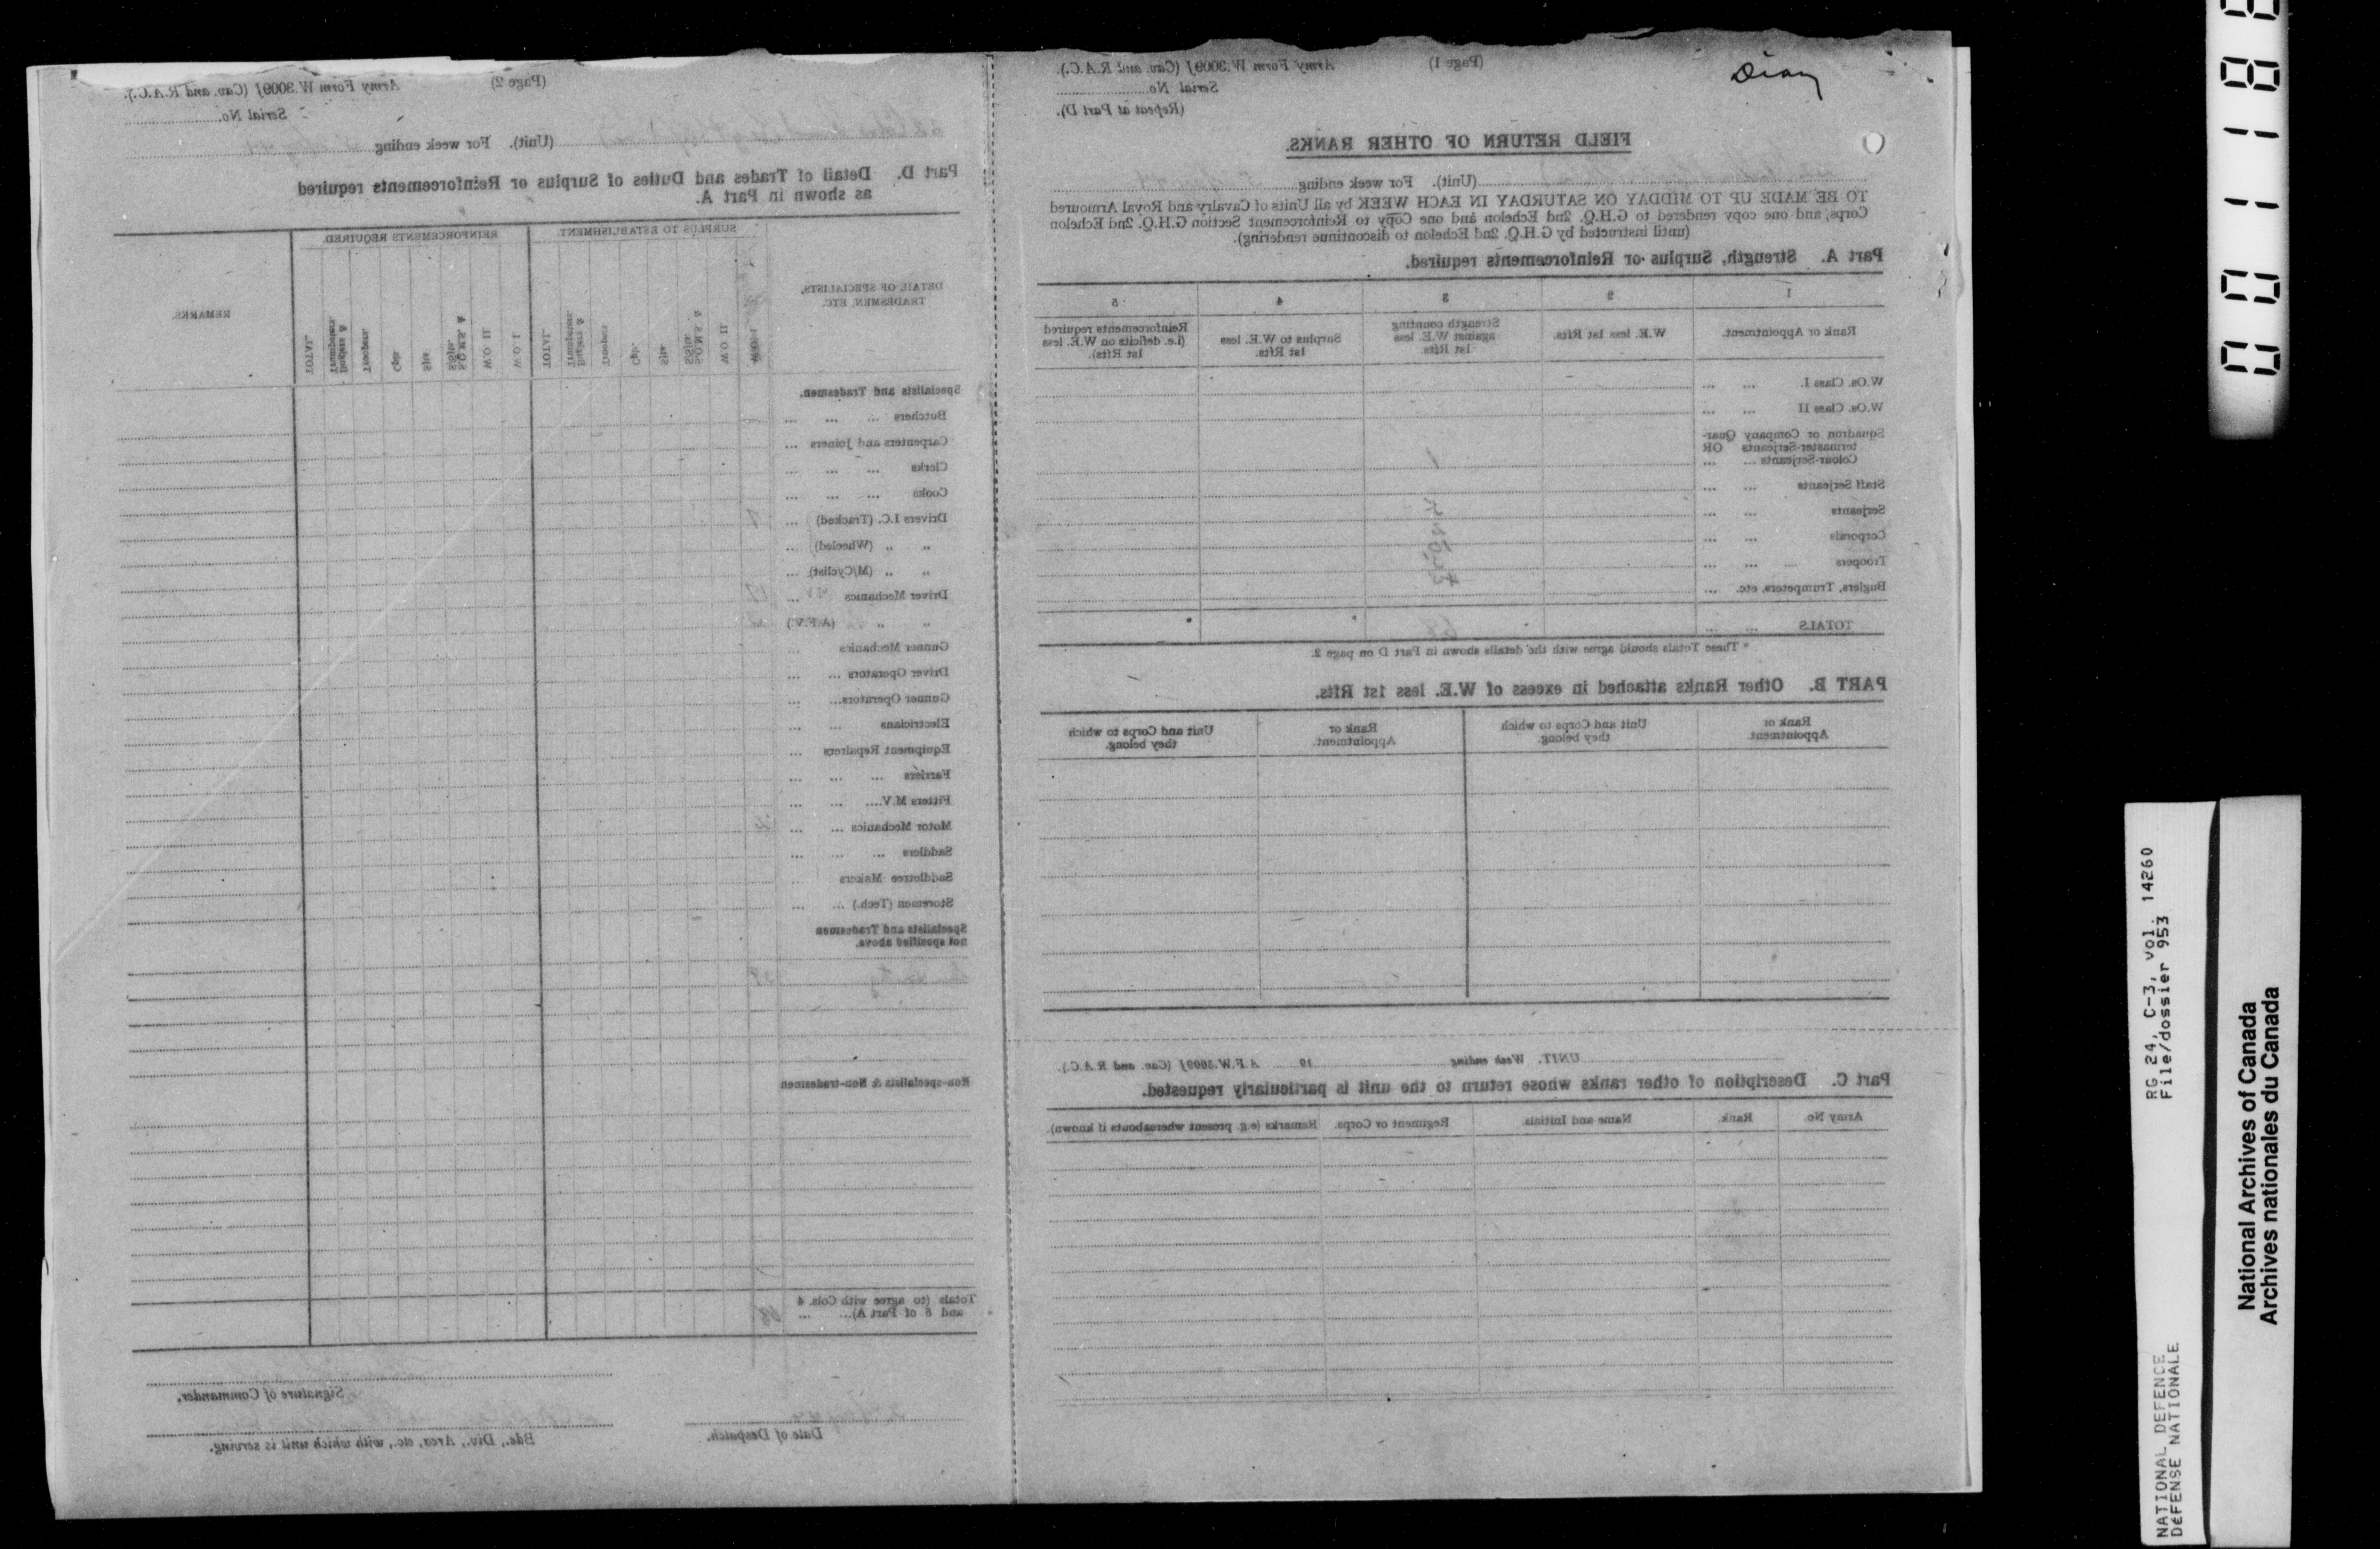 Diary
(Page 1)
Army Form W.3009J (Cav. and R.A.C.).
Serial No.
(Repeat at Part D).
FIELD RETURN OF OTHER RANKS.
(Unit). For week ending
TO BE MADE UP TO MIDDAY ON SATURDAY IN EACH WEEK by all Units of Cavalry and Royal Armoured
Corps, and one copy rendered to G.H.Q. 2nd Echelon and one Copy to Reinforcement Section G.H.Q. 2nd Echelon
(until instructed by G.H.Q. 2nd Echelon to discontinue rendering).
Part A. Strength, Surplus or Reinforcements required.
1 2 3 4 5
Rank or Appointment.
W.E. less 1st Rfts.
Strength counting
against W.E. less
1st Rfts
Surplus to W.E. less
1st Rfts.
Reinforcements required
(i.e. deficits on W.E. less
1st Rfts).
W.Os. Class I.
W.Os. Class II
Squadron or Company Quar-
termaster-Serjeants OR
Colour-Serjeants 1
Staff Serjeants
Serjeants
Corporals
Troopers
Buglers, Trumpeters, etc.
TOTALS 68
* These Totals should agree with the details shown in Part D on page 2.
PART B. Other Ranks attached in excess of W.E. less 1st Rfts.
Rank or
Appointment.
Unit and Corps to which
they belong.
Rank or
Appointment.
Unit and Corps to which
they belong.
UNIT. Week ending 19 A.F.W.3009J (Cav. and R.A.C.).
Part C. Description of other ranks whose return to the unit is particularly requested.
Army No. Rank. Name and Initials. Regiment or Corps. Remarks (e.g. present whereabouts if known).
(Page 2)
Army Form W.3009J (Cav. and R.A.C.).
Serial No.
(Unit). For week ending
Part D. Detail of Trades and Duties of Surplus or Reinforcements required
as shown in Part A.
DETAIL OF SPECIALISTS,
TRADESMEN, ETC.
SURPLUS TO ESTABLISHMENT.
W.O. I.
W.O. II.
S.Q.M.S. &
S/Sjts.
Sjts.
Cpls.
Troopers
Buglers &
Trumpeters.
TOTAL.
REINFORCEMENTS REQUIRED.
W.O. I.
W.O. II.
S.Q.M.S. &
S/Sjts.
Sjts.
Cpls.
Troopers.
Buglers &
Trumpeters.
TOTAL.
REMARKS.
Specialists and Tradesmen.
Butchers
Carpenters and Joiners
Clerks
Cooks
Drivers I.C. (Tracked)
" " (Wheeled)
" " (M/Cyclist)
Driver Mechanics
" " (A.F.V.)
Gunner Mechanics
Driver Operators
Gunner Operators
Electricians
Equipment Repairers
Farriers
Fitters M.V.
Motor Mechanics
Saddlers
Saddletree Makers
Storemen (Tech.)
Specialists and Tradesmen
not specified above.
Non-specialists & Non-tradesmen
Totals (to agree with Cols. 4
and 5 of Part A) 68
Signature of Commander.
Bde., Div., Area, etc., with which unit is serving.
Date of Despatch.
001188
RG 24, C-3, vol. 14260
File/dossier 953
NATIONAL DEFENCE
DÉFENSE NATIONALE
National Archives of Canada
Archives nationales du Canada